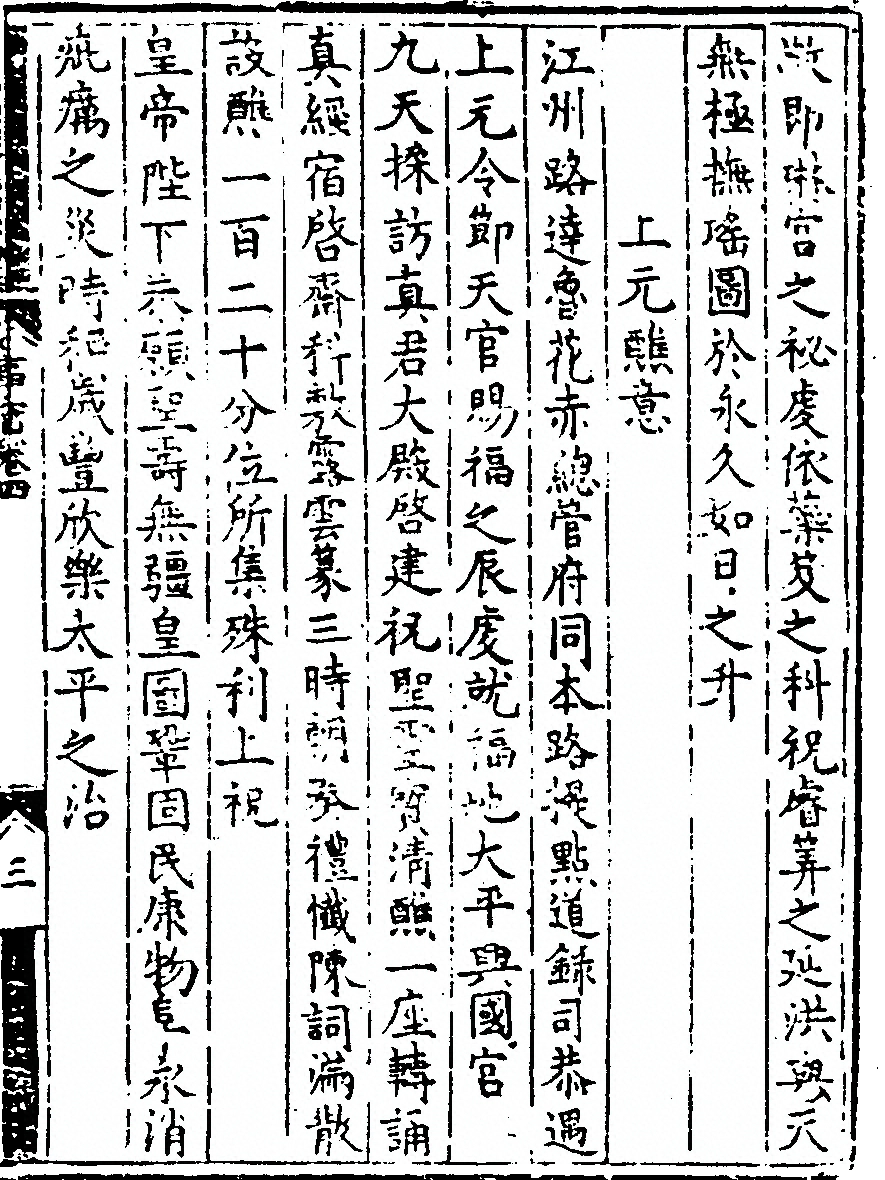 啟即琳宮之祕虔依蘂笈之科祝睿筭之延洪與天
無極撫瑤圖於永久如日之升
上元醮意
江州路達魯花赤總管府同本路提點道錄司恭遇
上元令節天官賜福之辰虔就福地太平興國宮
九天採訪真君大殿啓建祝聖靈寳清醮一座轉誦
真經宿啓齋科敷露雲篆三時朝奏禮懺陳詞滿散
設醮一百二十分位所集殊利上祝
皇帝陛下恭願聖壽無疆皇圖鞏固民康物阜永消
疵癘之災時和歲豐欣樂太平之治
卷四
三